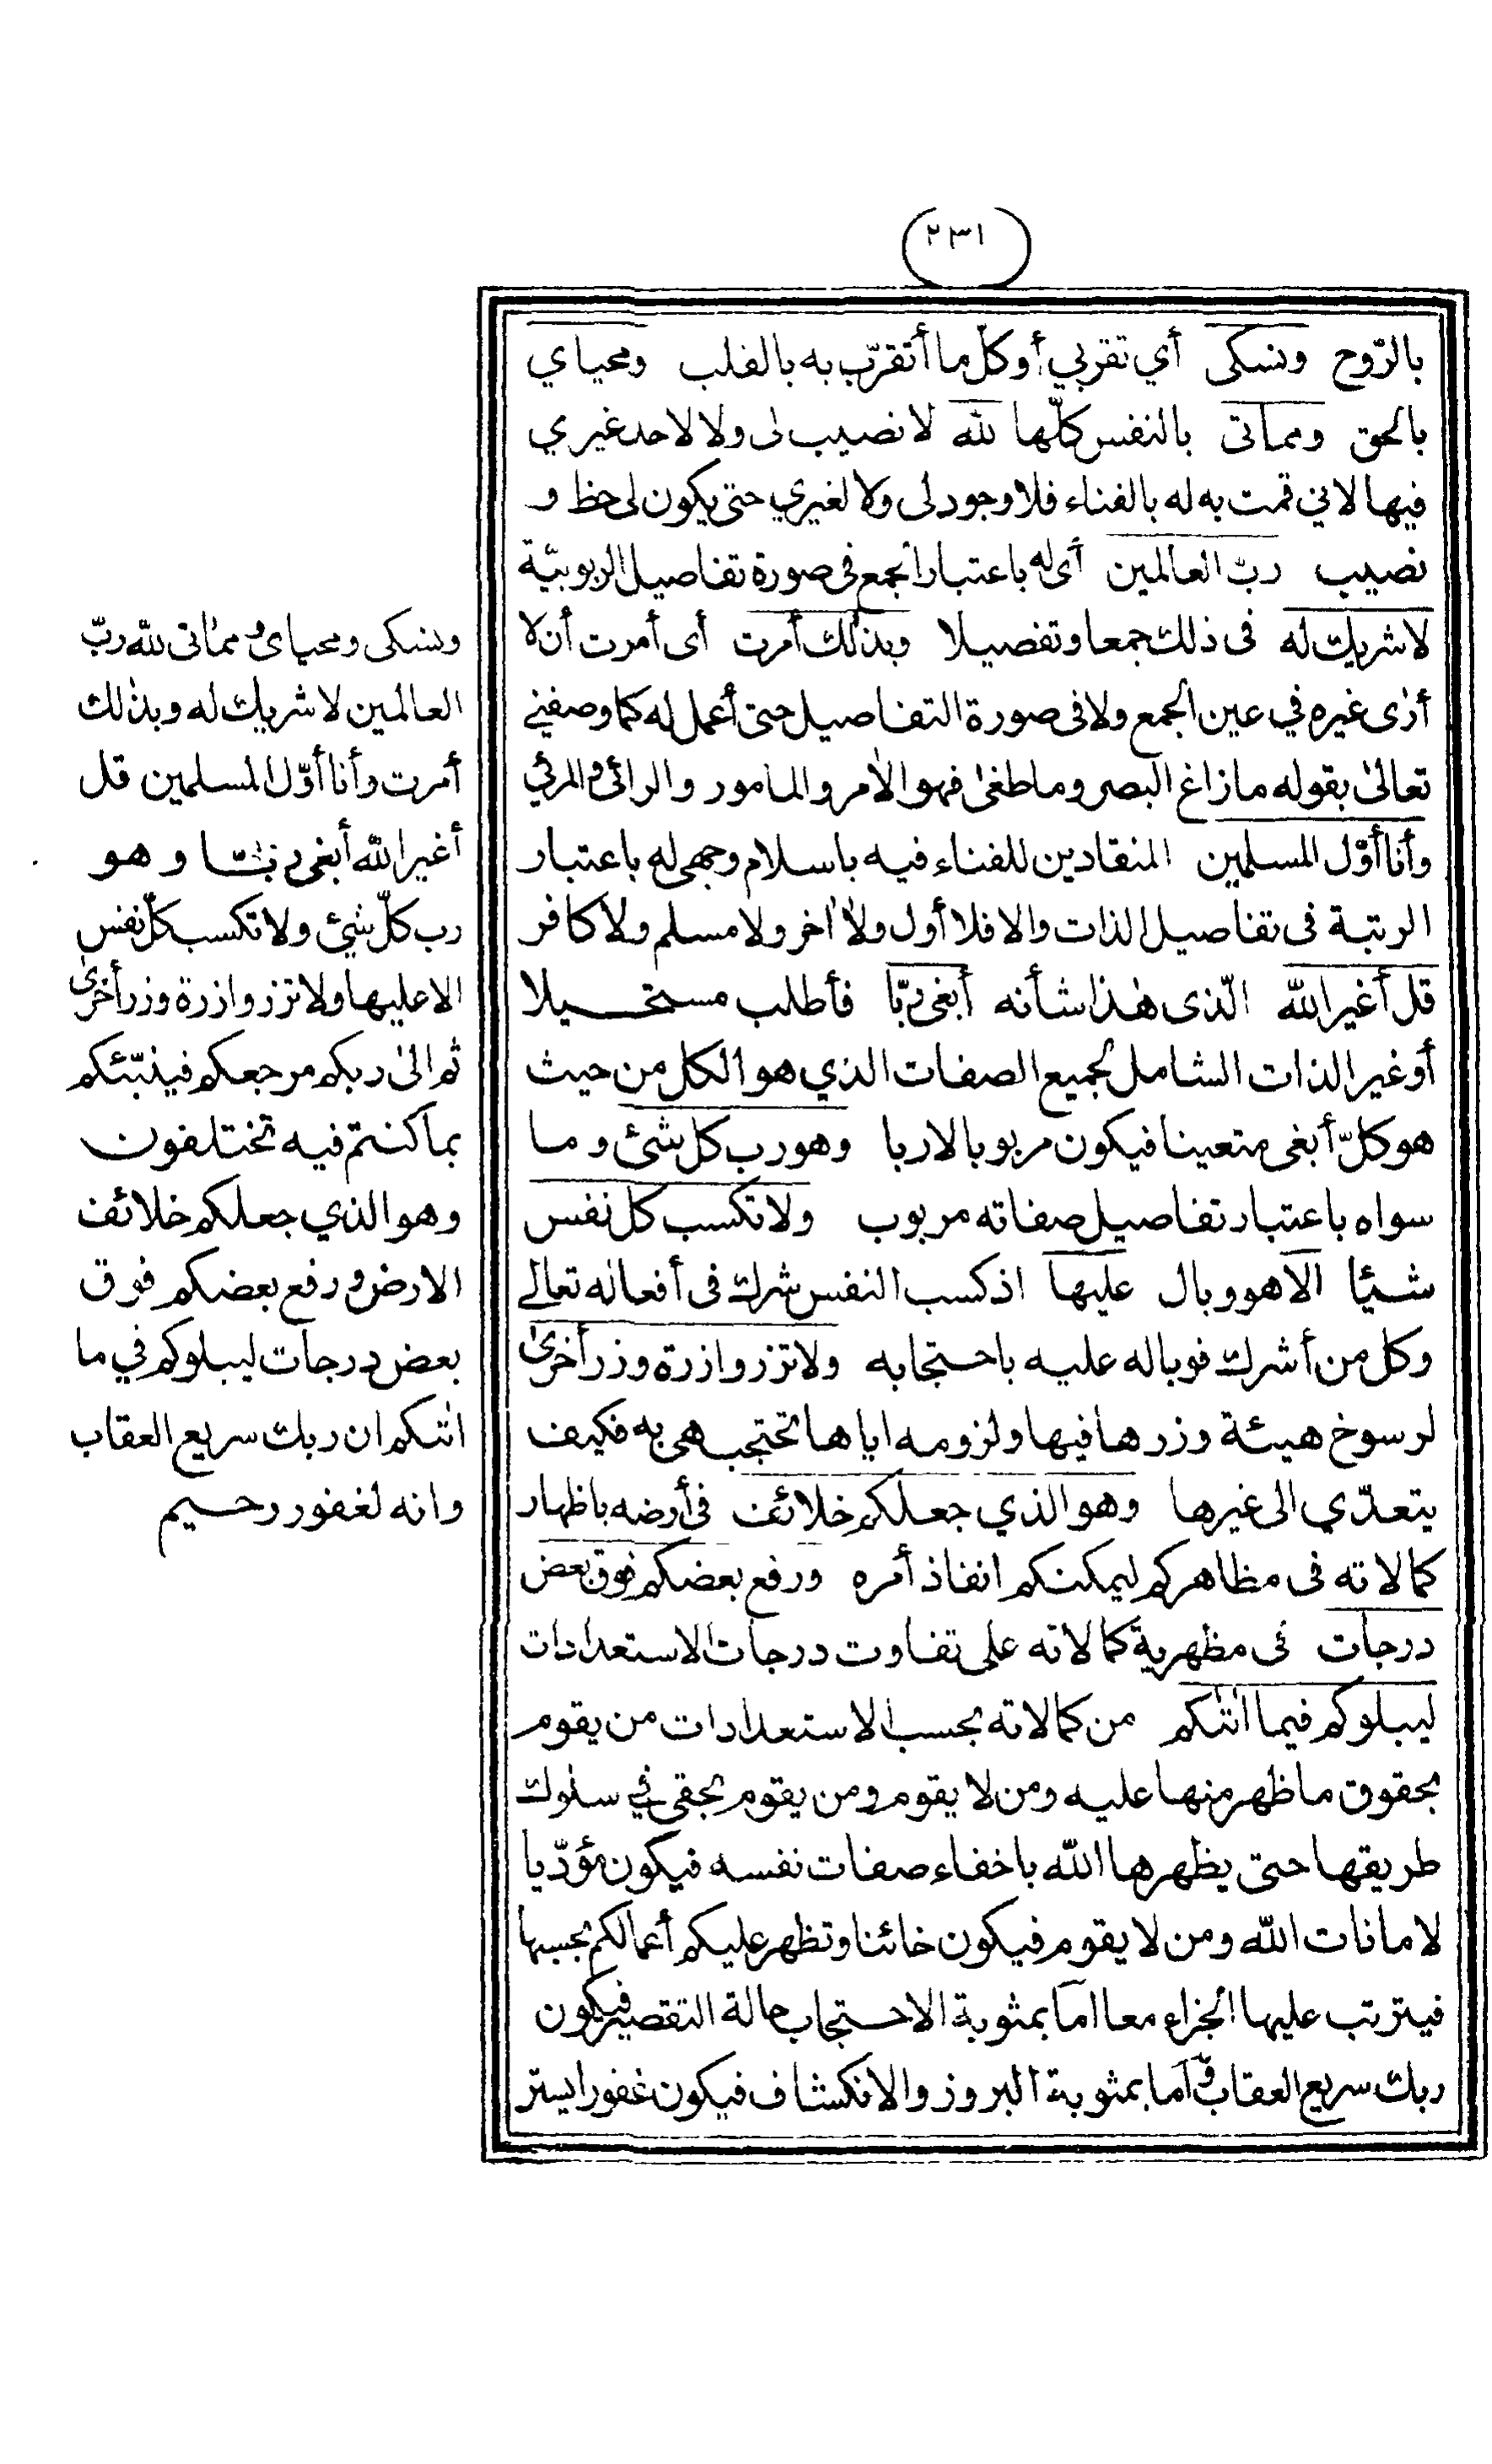 ٢٣١
بالرّوح ونسكى أي تقربي أو كلّ ما أتقرّب به بالقلب ومحياي
بالحق ومماتى بالنفس كلّها لله لا نصيب لى ولا لاحد غيري
فيها لاني قمت به له بالفناء فلا وجود لى ولا لغيري حتى يكون لى حظ و
نصيب ربّ العالمين أى له باعتبار الجمع فى صورة تفاصيل الربوبيّة
لا شريك له فى ذلك جمعا وتفصيلا وبذلك أمرت أى أمرت أن لا
أرى غيره في عين الجمع ولا فى صورة التفاصيل حتى أعمل له كما وصفني
تعالى بقوله ما زاغ البصر وما طغى فهو الآمر والمامور والرائى والمرئي
وأنا أوّل المسلمين المنقادين للفناء فيه باسلام وجهى له باعتبار
الرتبة فى تفاصيل الذات والا فلا أول ولا آخر ولا مسلم ولا كافر
قل أغير الله الّذى هذا شأنه أبغى ربّا فأطلب مستحيلا
أو غير الذات الشامل لجميع الصفات الذي هو الكل من حيث
هو كلّ أبغى متعينا فيكون مربوبا لا ربا وهو رب كل شئ وما
سواه باعتبار تفاصيل صفاته مربوب ولا تكسب كل نفس
شيئا الّا هو وبال عليها اذ كسب النفس شرك فى أفعاله تعالى
وكل من أشرك فوباله عليه باحتجابه ولا تزر وازرة وزر أخرى
لرسوخ هيئة وزرها فيها ولزومه اياها تحتجب هى به فكيف
يتعدّي الى غيرها وهو الذي جعلكم خلائف فى أرضه باظهار
كمالاته فى مظاهركم ليمكنكم انفاذ أمره ورفع بعضكم فوق بعض
درجات فى مظهرية كمالاته على تفاوت درجات الاستعدادات
ليبلوكم فيما اتٰكم من كمالاته بحسب الاستعدادات من يقوم
بحقوق ما ظهر منها عليه ومن لا يقوم ومن يقوم بحقى في سلوك
طريقها حتى يظهرها الله باخفاء صفات نفسه فيكون مؤدّيا
لامانات الله ومن لا يقوم فيكون خائنا وتظهر عليكم أعمالكم بحسبها
فيترتب عليها الجزاء معا امّا بمثوبة الاحتجاب حالة التقصير فيكون
ربك سريع العقاب وامّا بمثوبة البروز والانكشاف فيكون غفورا يستر
ونسكى ومحياى ومماتى لله ربّ
العالمين لا شريك له وبذلك
أمرت وأنا أوّل المسلمين قل
أغير الله أبغى ربّا وهو
رب كلّ شئ ولا تكسب كلّ نفس
الا عليها ولا تزر وازرة وزر أخرى
ثم الى ربكم مرجعكم فينبّئكم
بما كنتم فيه تختلفون
وهو الذي جعلكم خلائف
الارض ورفع بعضكم فوق
بعض درجات ليبلوكم في ما
اتٰكم ان ربك سريع العقاب
وانه لغفور رحيم